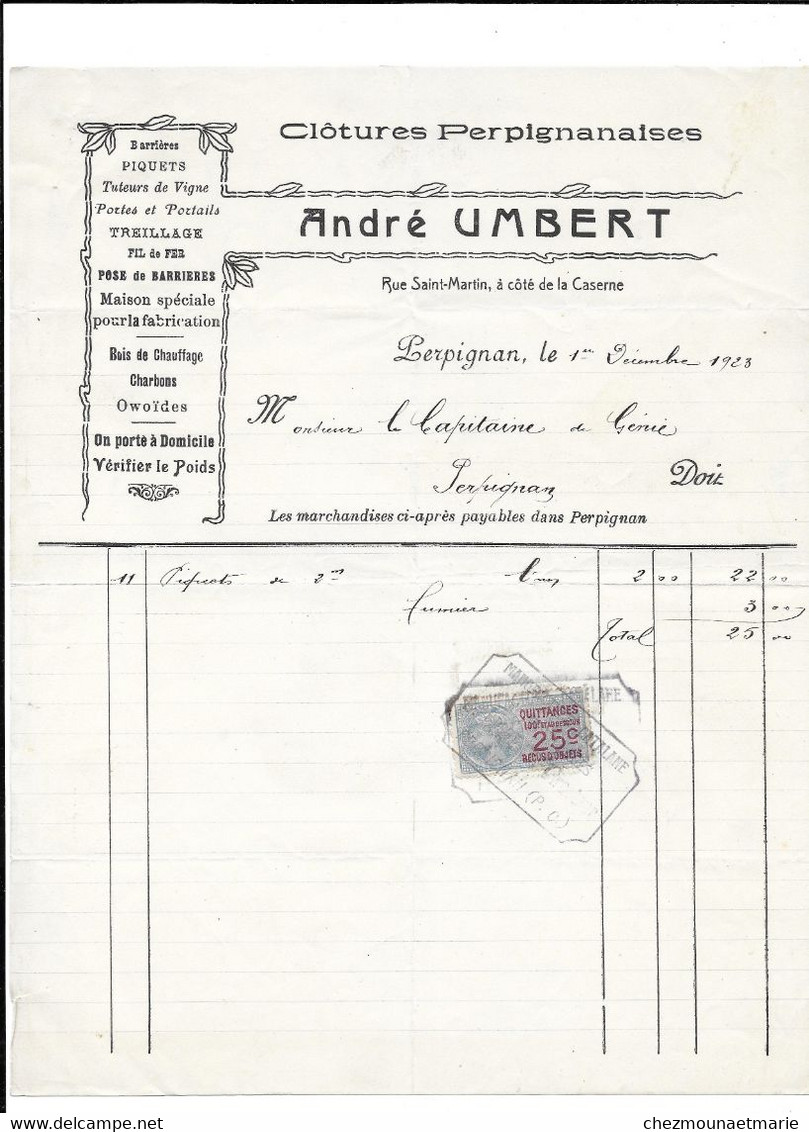 Clôtures Perpignanaises
André UMBERT
Rue Saint-Martin, à côté de la Caserne
Barrières
PIQUETS
Tuteurs de Vigne
Portes et Portails
TREILLAGE
FIL de FER
POSE de BARRIERES
Maison spéciale
pour la fabrication
Bois de Chauffage
Charbons
Owoïdes
On porte à Domicile
Vérifier le Poids
Perpignan, le 1er Décembre 1923
Monsieur le Capitaine de Génie
Perpignan Doit
Les marchandises ci-après payables dans Perpignan
11 Piquets de 2m 2 00 22 00
3 00
Total 25 00
QUITTANCES
25c
REÇUS D'OBJETS
(P. O.)
HipPostcard.com
chezmounaetmarie